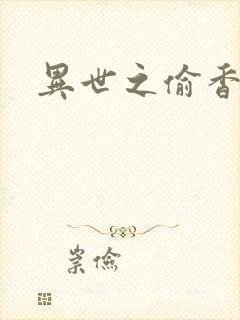 異世之偷香
崇儉